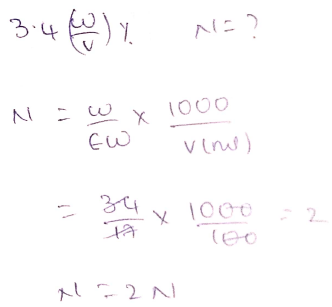 3.4 (w/v) %. N = ?
N = w/EW × 1000/V(ml)
= 34/17 × 1000/100 = 2
N = 2 N